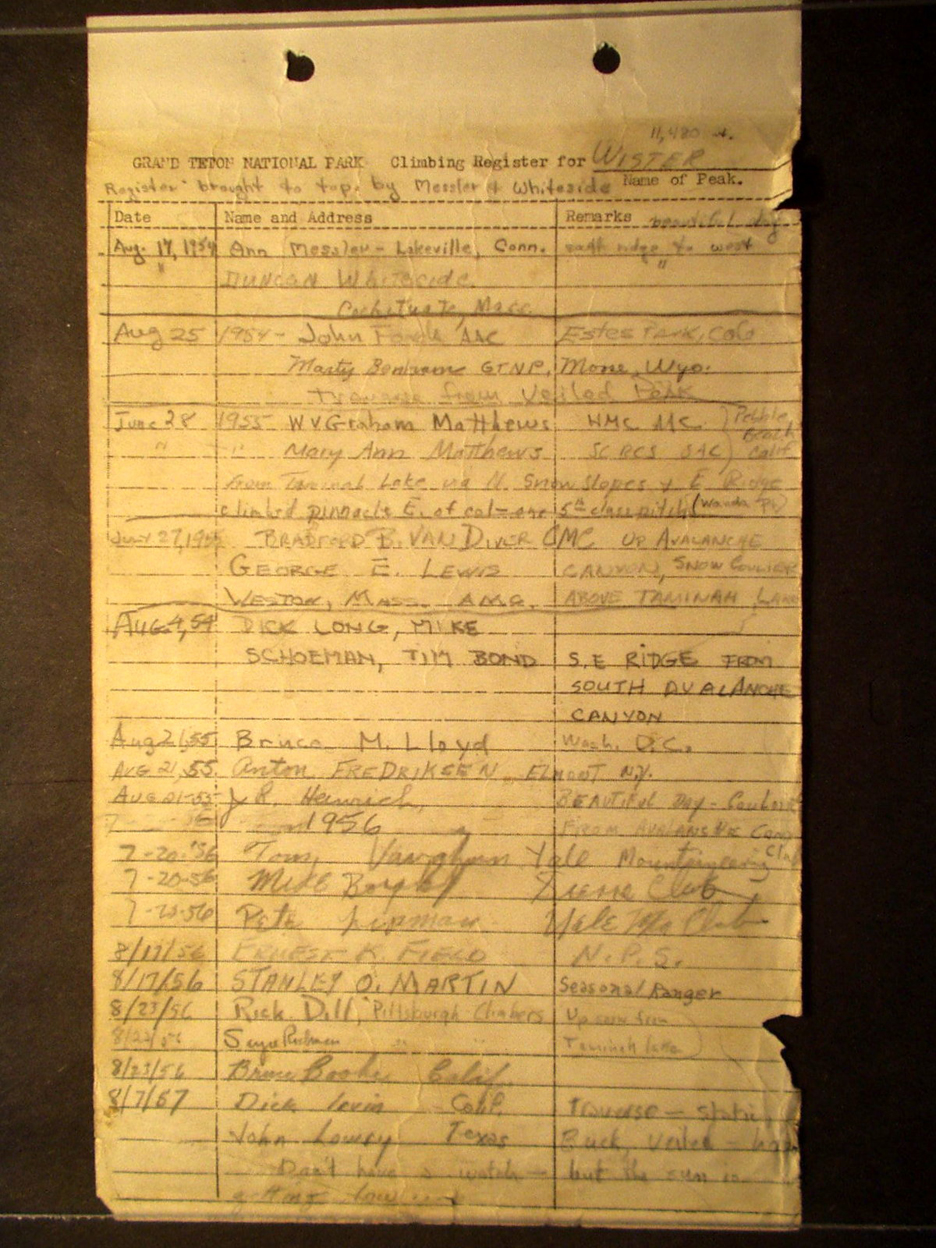 11,480
GRAND TETON NATIONAL PARK Climbing Register for WISTER
Register brought to top by Messler & Whiteside Name of Peak.
Date Name and Address Remarks beautiful day
Aug. 17, 1954 Ann Messler - Lakeville, Conn. ridge to west
" DUNCAN Whiteside "
Cochituate, Mass.
Aug 25 1954 - John AAC Estes Park, Colo
Marty GTNP, Moose, Wyo.
Traverse from Veiled Peak
June 28 1955 WVGraham Matthews HMC AAC Pebble Beach Calif
" " Mary Ann Matthews SC RCS SAC
from Taminah Lake via N. Snow slopes & E Ridge
climbed pinnacle E. of col - one 5th class pitch
July 27, 1955 BRADFORD B. VAN DIVER CMC UP AVALANCHE
GEORGE E. LEWIS CANYON, SNOW COULOIR
WESTON, MASS. AMC. ABOVE TAMINAH LAKE
Aug. 4, 54 DICK LONG, MIKE
SCHOEMAN, TIM BOND S.E RIDGE FROM
SOUTH AVALANCHE
CANYON
Aug 21, 55 Bruce M. Lloyd Wash. D.C.
AUG 21, 55. Anton FREDRIKSEN, ELMONT N.Y.
AUG 21-55 J R. Heinrich, BEAUTIFUL DAY -
1956 FROM AVALANCHE
7-20-'56 Tom Vaughan Yale Mountaineering Club
7-20-56 Mike Sierra Club
7-20-56 Pete Lipman Yale Mtn Club
8/17/56 ERNEST K. FIELD N.P.S.
8/17/56 STANLEY O. MARTIN Seasonal Ranger
8/23/56 Rick Dill, Pittsburgh Climbers Up from
8/23/56 " " Taminah lake
8/23/56 Bruce Calif.
8/7/57 Dick Irvin Calif. Traverse - Static
John Lowry Texas Buck, Veiled -
Don't have a watch - but the sun is
getting low